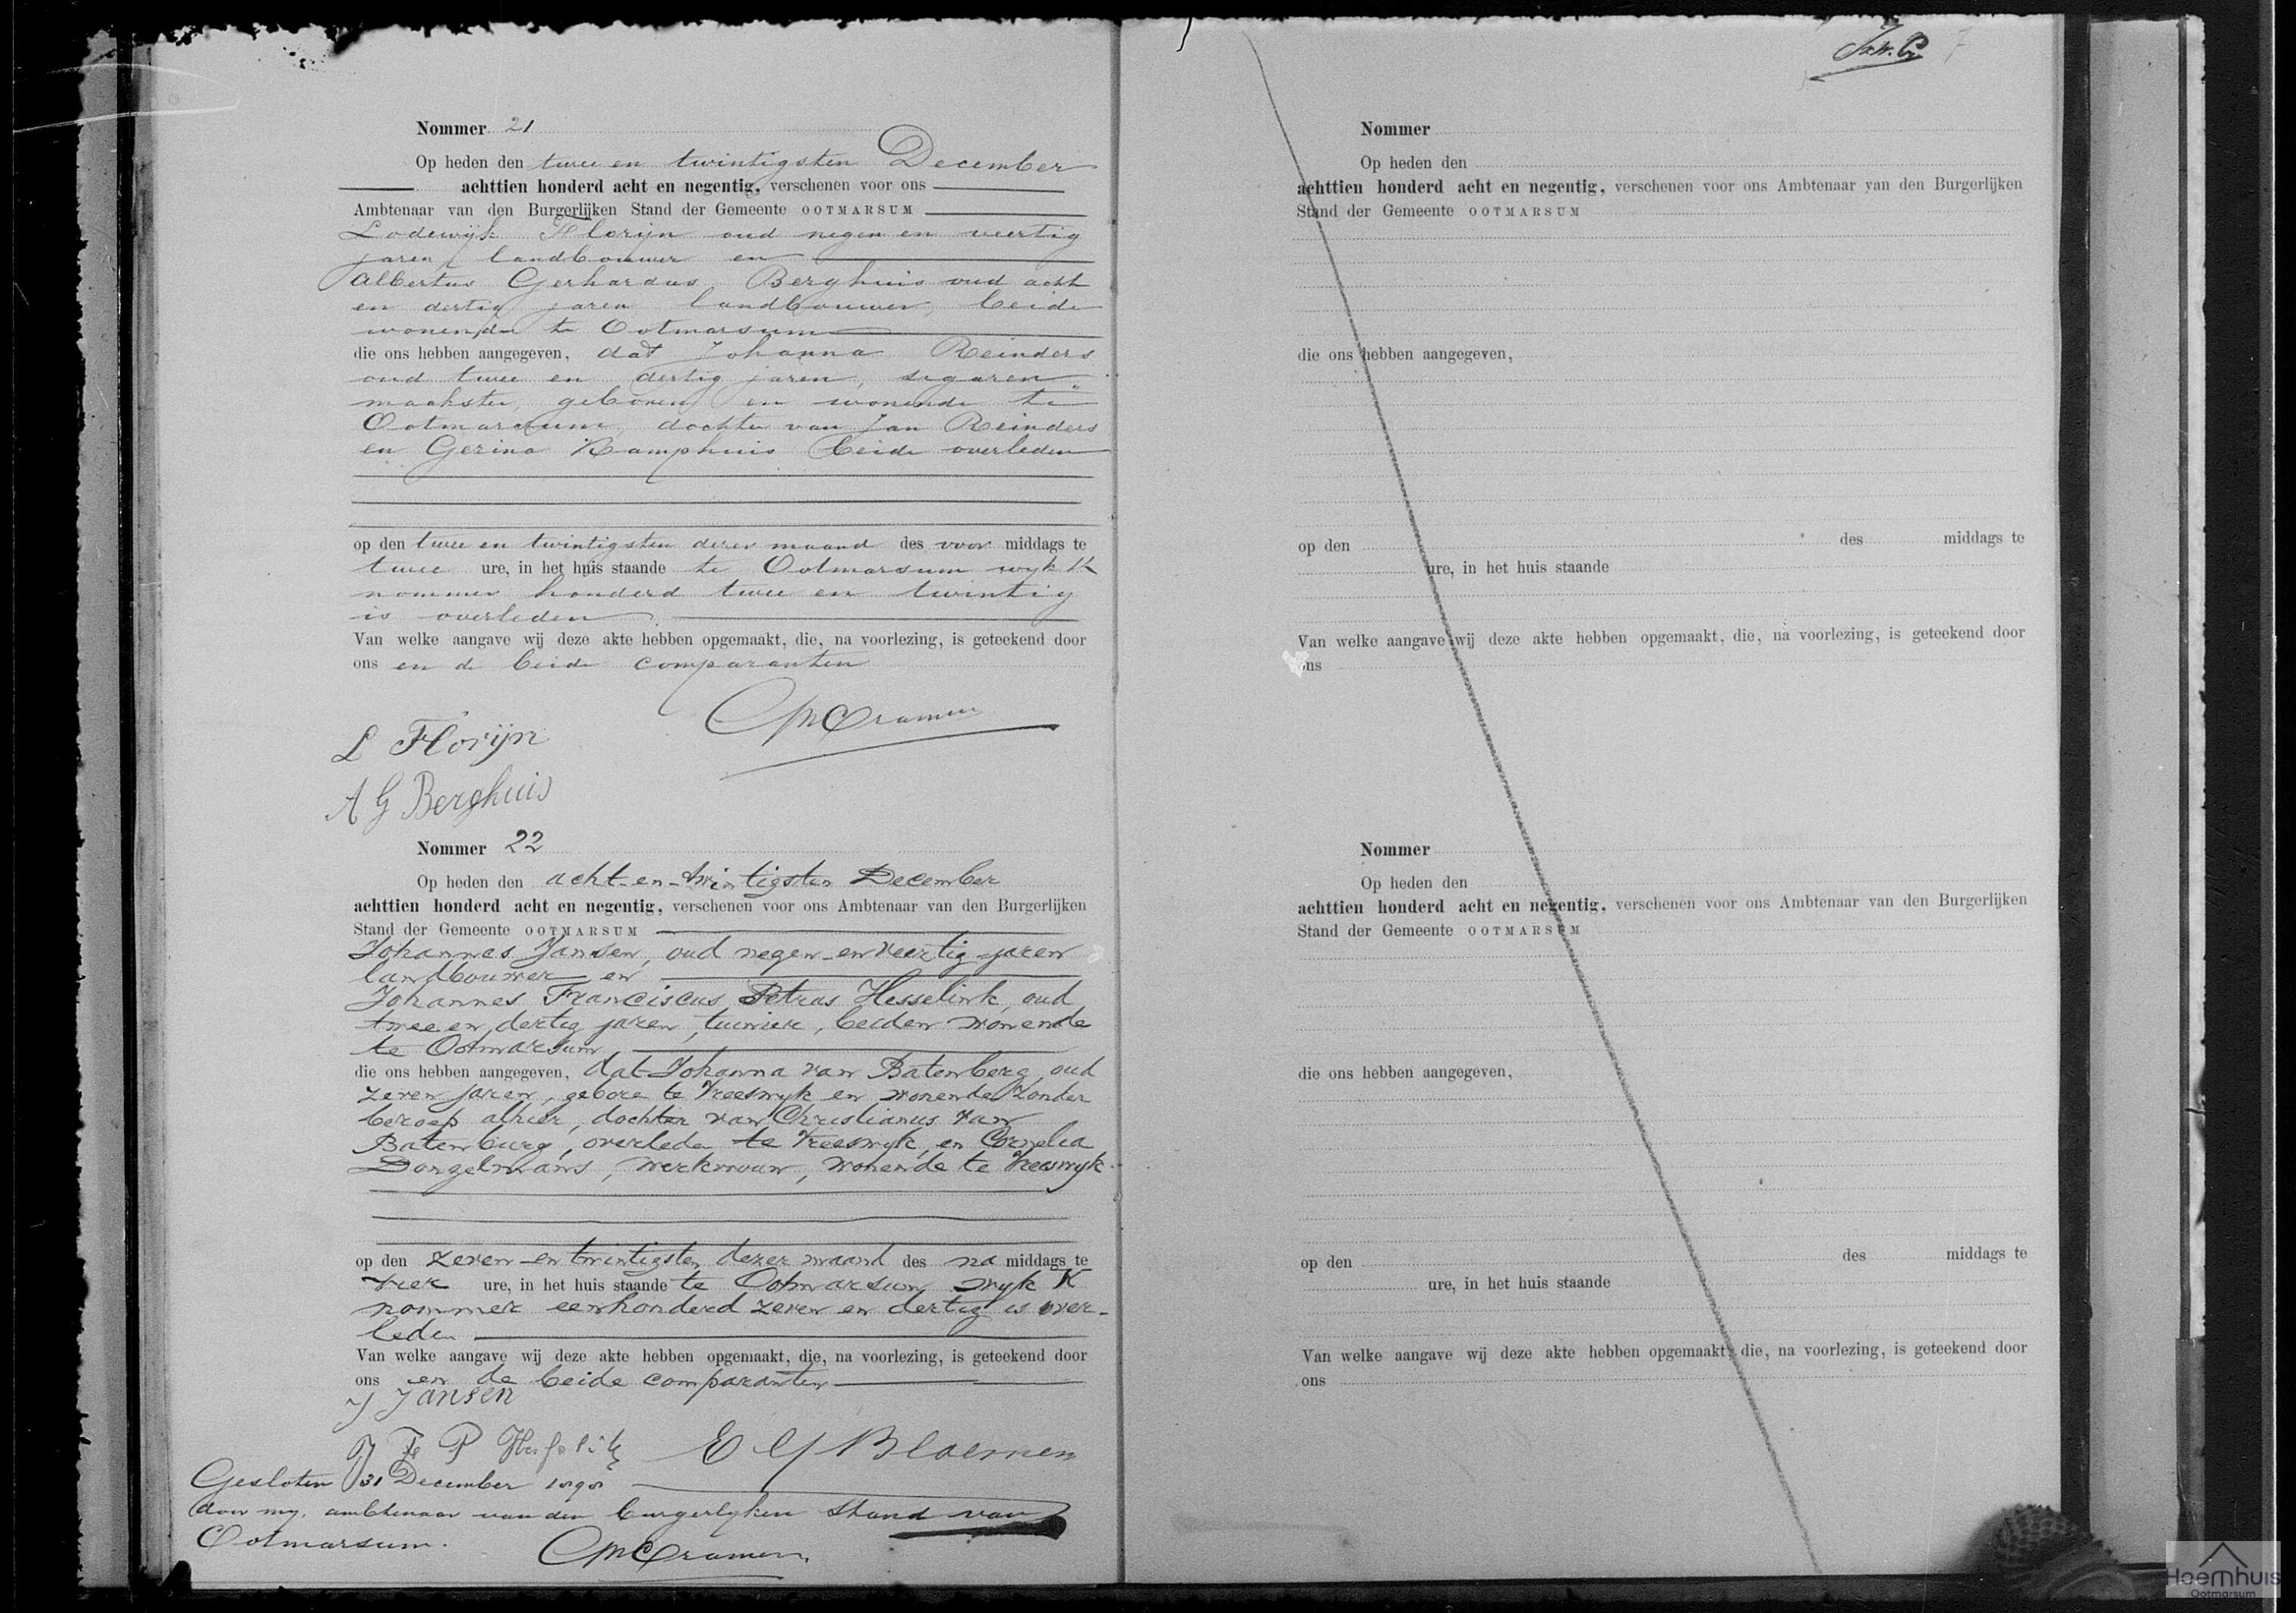 Nommer 21
Op heden den twee en twintigsten December
achttien honderd acht en negentig, verschenen voor ons
Ambtenaar van den Burgerlijken Stand der Gemeente OOTMARSUM
Lodewijk Florijn oud negen en veertig
jaren landbouwer en
Albertus Gerhardus Berghuis oud acht
en dertig jaren landbouwer, beide
wonende te Ootmarsum
die ons hebben aangegeven, dat Johanna Reinders
oud twee en dertig jaren, sigaren
maakster, geboren en wonende te
Ootmarsum, dochter van Jan Reinders
en Gerina Kamphuis beide overleden
op den twee en twintigsten dezer maand des voor middags te
twee ure, in het huis staande te Ootmarsum wyk K
nommer honderd twee en twintig
is overleden
Van welke aangave wij deze akte hebben opgemaakt, die, na voorlezing, is geteekend door
ons en de beide comparanten
Cramer
L Florijn
A G Berghuis
Nommer 22
Op heden den acht-en-twintigsten December
achttien honderd acht en negentig, verschenen voor ons Ambtenaar van den Burgerlijken
Stand der Gemeente OOTMARSUM
Johannes Jansen, oud negen-en veertig jaren
landbouwer en
Johannes Franciscus Petrus Hesselink, oud
twee en dertig jaren, tuinier, beiden wonende
te Ootmarsum
die ons hebben aangegeven, dat Johanna van Batenberg, oud
zeven jaren, gebore te Vreeswyk en wonende zonder
beroep alhier, dochter van Christianus van
Batenburg, overleden te Vreeswyk, en Cornelia
Dongelmans, werkvrouw, wonende te Vreeswyk
op den zeven-en twintigsten dezer maand des na middags te
vier ure, in het huis staande te Ootmarsum wyk K
nommer eenhonderd zeven en dertig is over-
leden
Van welke aangave wij deze akte hebben opgemaakt, die, na voorlezing, is geteekend door
ons en de beide comparanten
J Jansen
J F P
Bloemen
Gesloten 31 December 1898
door my, ambtenaar van den burgerlyken Stand van
Ootmarsum.
Cramer
Nommer
Op heden den
achttien honderd acht en negentig, verschenen voor ons Ambtenaar van den Burgerlijken
Stand der Gemeente OOTMARSUM
die ons hebben aangegeven,
op den des middags te
ure, in het huis staande
Van welke aangave wij deze akte hebben opgemaakt, die, na voorlezing, is geteekend door
ons
Nommer
Op heden den
achttien honderd acht en negentig, verschenen voor ons Ambtenaar van den Burgerlijken
Stand der Gemeente OOTMARSUM
die ons hebben aangegeven,
op den des middags te
ure, in het huis staande
Van welke aangave wij deze akte hebben opgemaakt, die, na voorlezing, is geteekend door
ons
Haemhuis
Ootmarsum